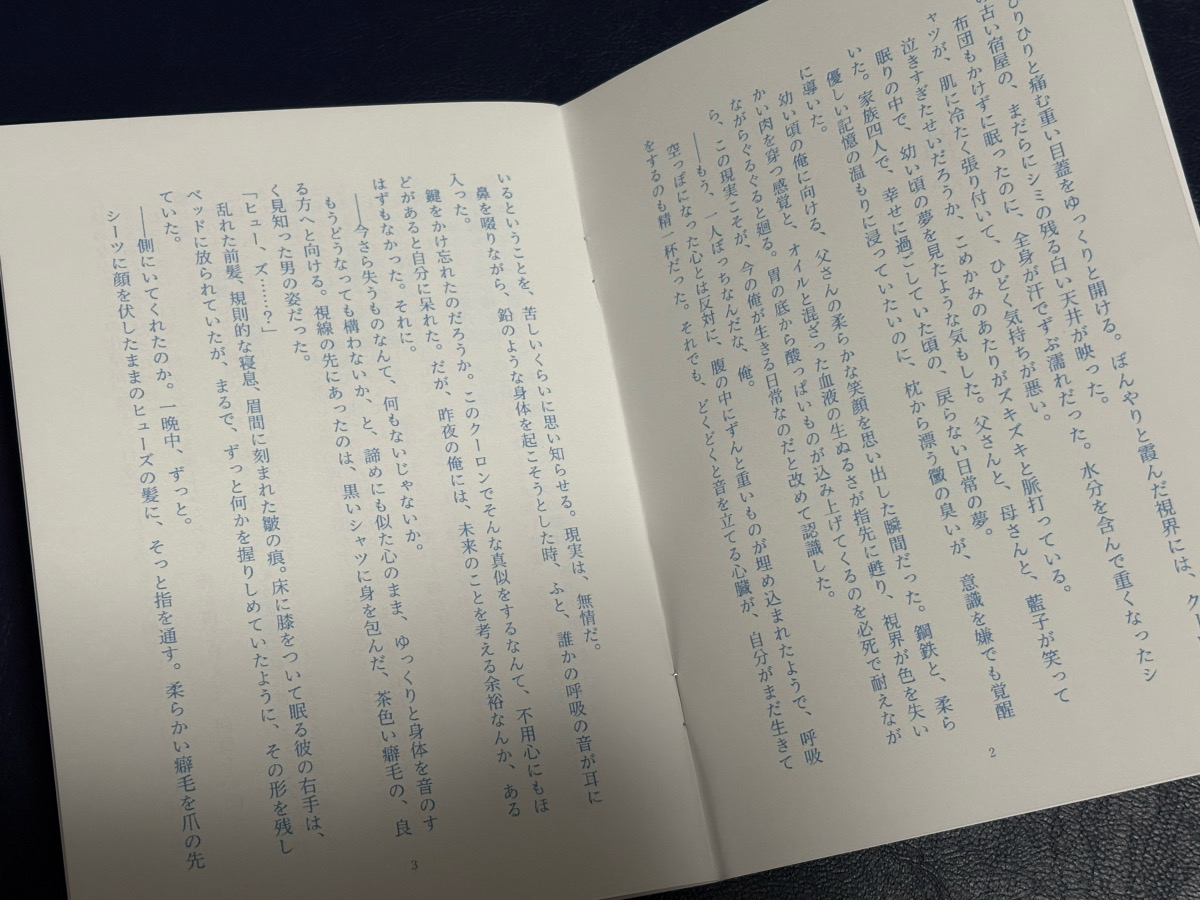 ひりひりと痛む重い目蓋をゆっくりと開ける。ぼんやりと霞んだ視界には、クー
の古い宿屋の、まだらにシミの残る白い天井が映った。
布団もかけずに眠ったのに、全身が汗でずぶ濡れだった。水分を含んで重くなったシ
ャツが、肌に冷たく張り付いて、ひどく気持ちが悪い。
泣きすぎたせいだろうか、こめかみのあたりがズキズキと脈打っている。
眠りの中で、幼い頃の夢を見たような気もした。父さんと、母さんと、藍子が笑って
いた。家族四人で、幸せに過ごしていた頃の、戻らない日常の夢。
優しい記憶の温もりに浸っていたいのに、枕から漂う黴の臭いが、意識を嫌でも覚醒
に導いた。
幼い頃の俺に向ける、父さんの柔らかな笑顔を思い出した瞬間だった。鋼鉄と、柔ら
かい肉を穿つ感覚と、オイルと混ざった血液の生ぬるさが指先に甦り、視界が色を失い
ながらぐるぐると廻る。胃の底から酸っぱいものが込み上げてくるのを必死で耐えなが
ら、この現実こそが、今の俺が生きる日常なのだと改めて認識した。
――もう、一人ぼっちなんだな、俺。
空っぽになった心とは反対に、腹の中にずんと重いものが埋め込まれたようで、呼吸
をするのも精一杯だった。それでも、どくどくと音を立てる心臓が、自分がまだ生きて
2
いるということを、苦しいくらいに思い知らせる。現実は、無情だ。
鼻を啜りながら、鉛のような身体を起こそうとした時、ふと、誰かの呼吸の音が耳に
入った。
鍵をかけ忘れたのだろうか。このクーロンでそんな真似をするなんて、不用心にもほ
どがあると自分に呆れた。だが、昨夜の俺には、未来のことを考える余裕なんか、ある
はずもなかった。それに。
――今さら失うものなんて、何もないじゃないか。
もうどうなっても構わないか、と、諦めにも似た心のまま、ゆっくりと身体を音のす
る方へと向ける。視線の先にあったのは、黒いシャツに身を包んだ、茶色い癖毛の、良
く見知った男の姿だった。
「ヒュー、ズ……？」
乱れた前髪、規則的な寝息、眉間に刻まれた皺の痕。床に膝をついて眠る彼の右手は、
ベッドに放られていたが、まるで、ずっと何かを握りしめていたように、その形を残し
ていた。
――側にいてくれたのか。一晩中、ずっと。
シーツに顔を伏したままのヒューズの髪に、そっと指を通す。柔らかい癖毛を爪の先
3